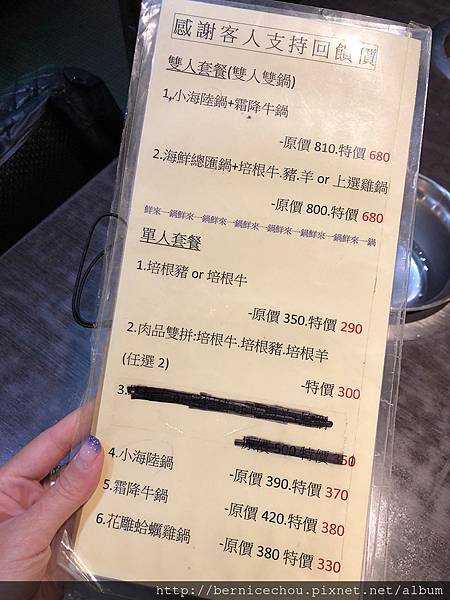 感謝客人支持回饋價
雙人套餐(雙人雙鍋)
1,小海陸鍋+霜降牛鍋
-原價 810.特價 680
2.海鮮總匯鍋+培根牛.豬.羊 or 上選雞鍋
-原價 800.特價 680
鮮來一鍋鮮來一鍋鮮來一鍋鮮來一鍋鮮來一鍋鮮來一鍋鮮來一鍋
單人套餐
1.培根豬 or 培根牛
-原價 350.特價 290
2.肉品雙拼:培根牛.培根豬.培根羊
(任選 2)
-特價 300
3.
4.小海陸鍋
-原價 390.特價 370
5.霜降牛鍋
-原價 420.特價 380
6.花雕蛤蠣雞鍋
-原價 380 特價 330
http://bernicechou.pixnet.net/album